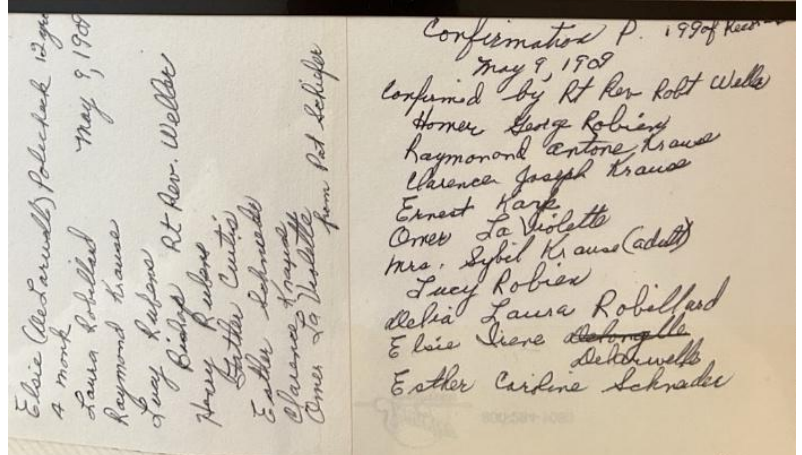 Elsie (DeLarwelle) Polechek 12 yrs
A monk
Laura Robillard May 9, 1909
Raymond Krause
Lucy Rubens
Bishop Rt Rev. Weller
Harry Rubens
Father Curtis
Esther Schneder
Clarence Krause
Omer La Violette
from Pat Schiefer
Confirmation P. 199 of
May 9, 1909
Confirmed by Rt Rev Robt Weller
Homer George Robien
Raymonond Antone Krause
Clarence Joseph Krause
Ernest Karp
Omer La Violette
Mrs. Sybil Krause (adult)
Lucy Robien
Delia Laura Robillard
Elsie Irene
DeLarwelle
Esther Caroline Schnader